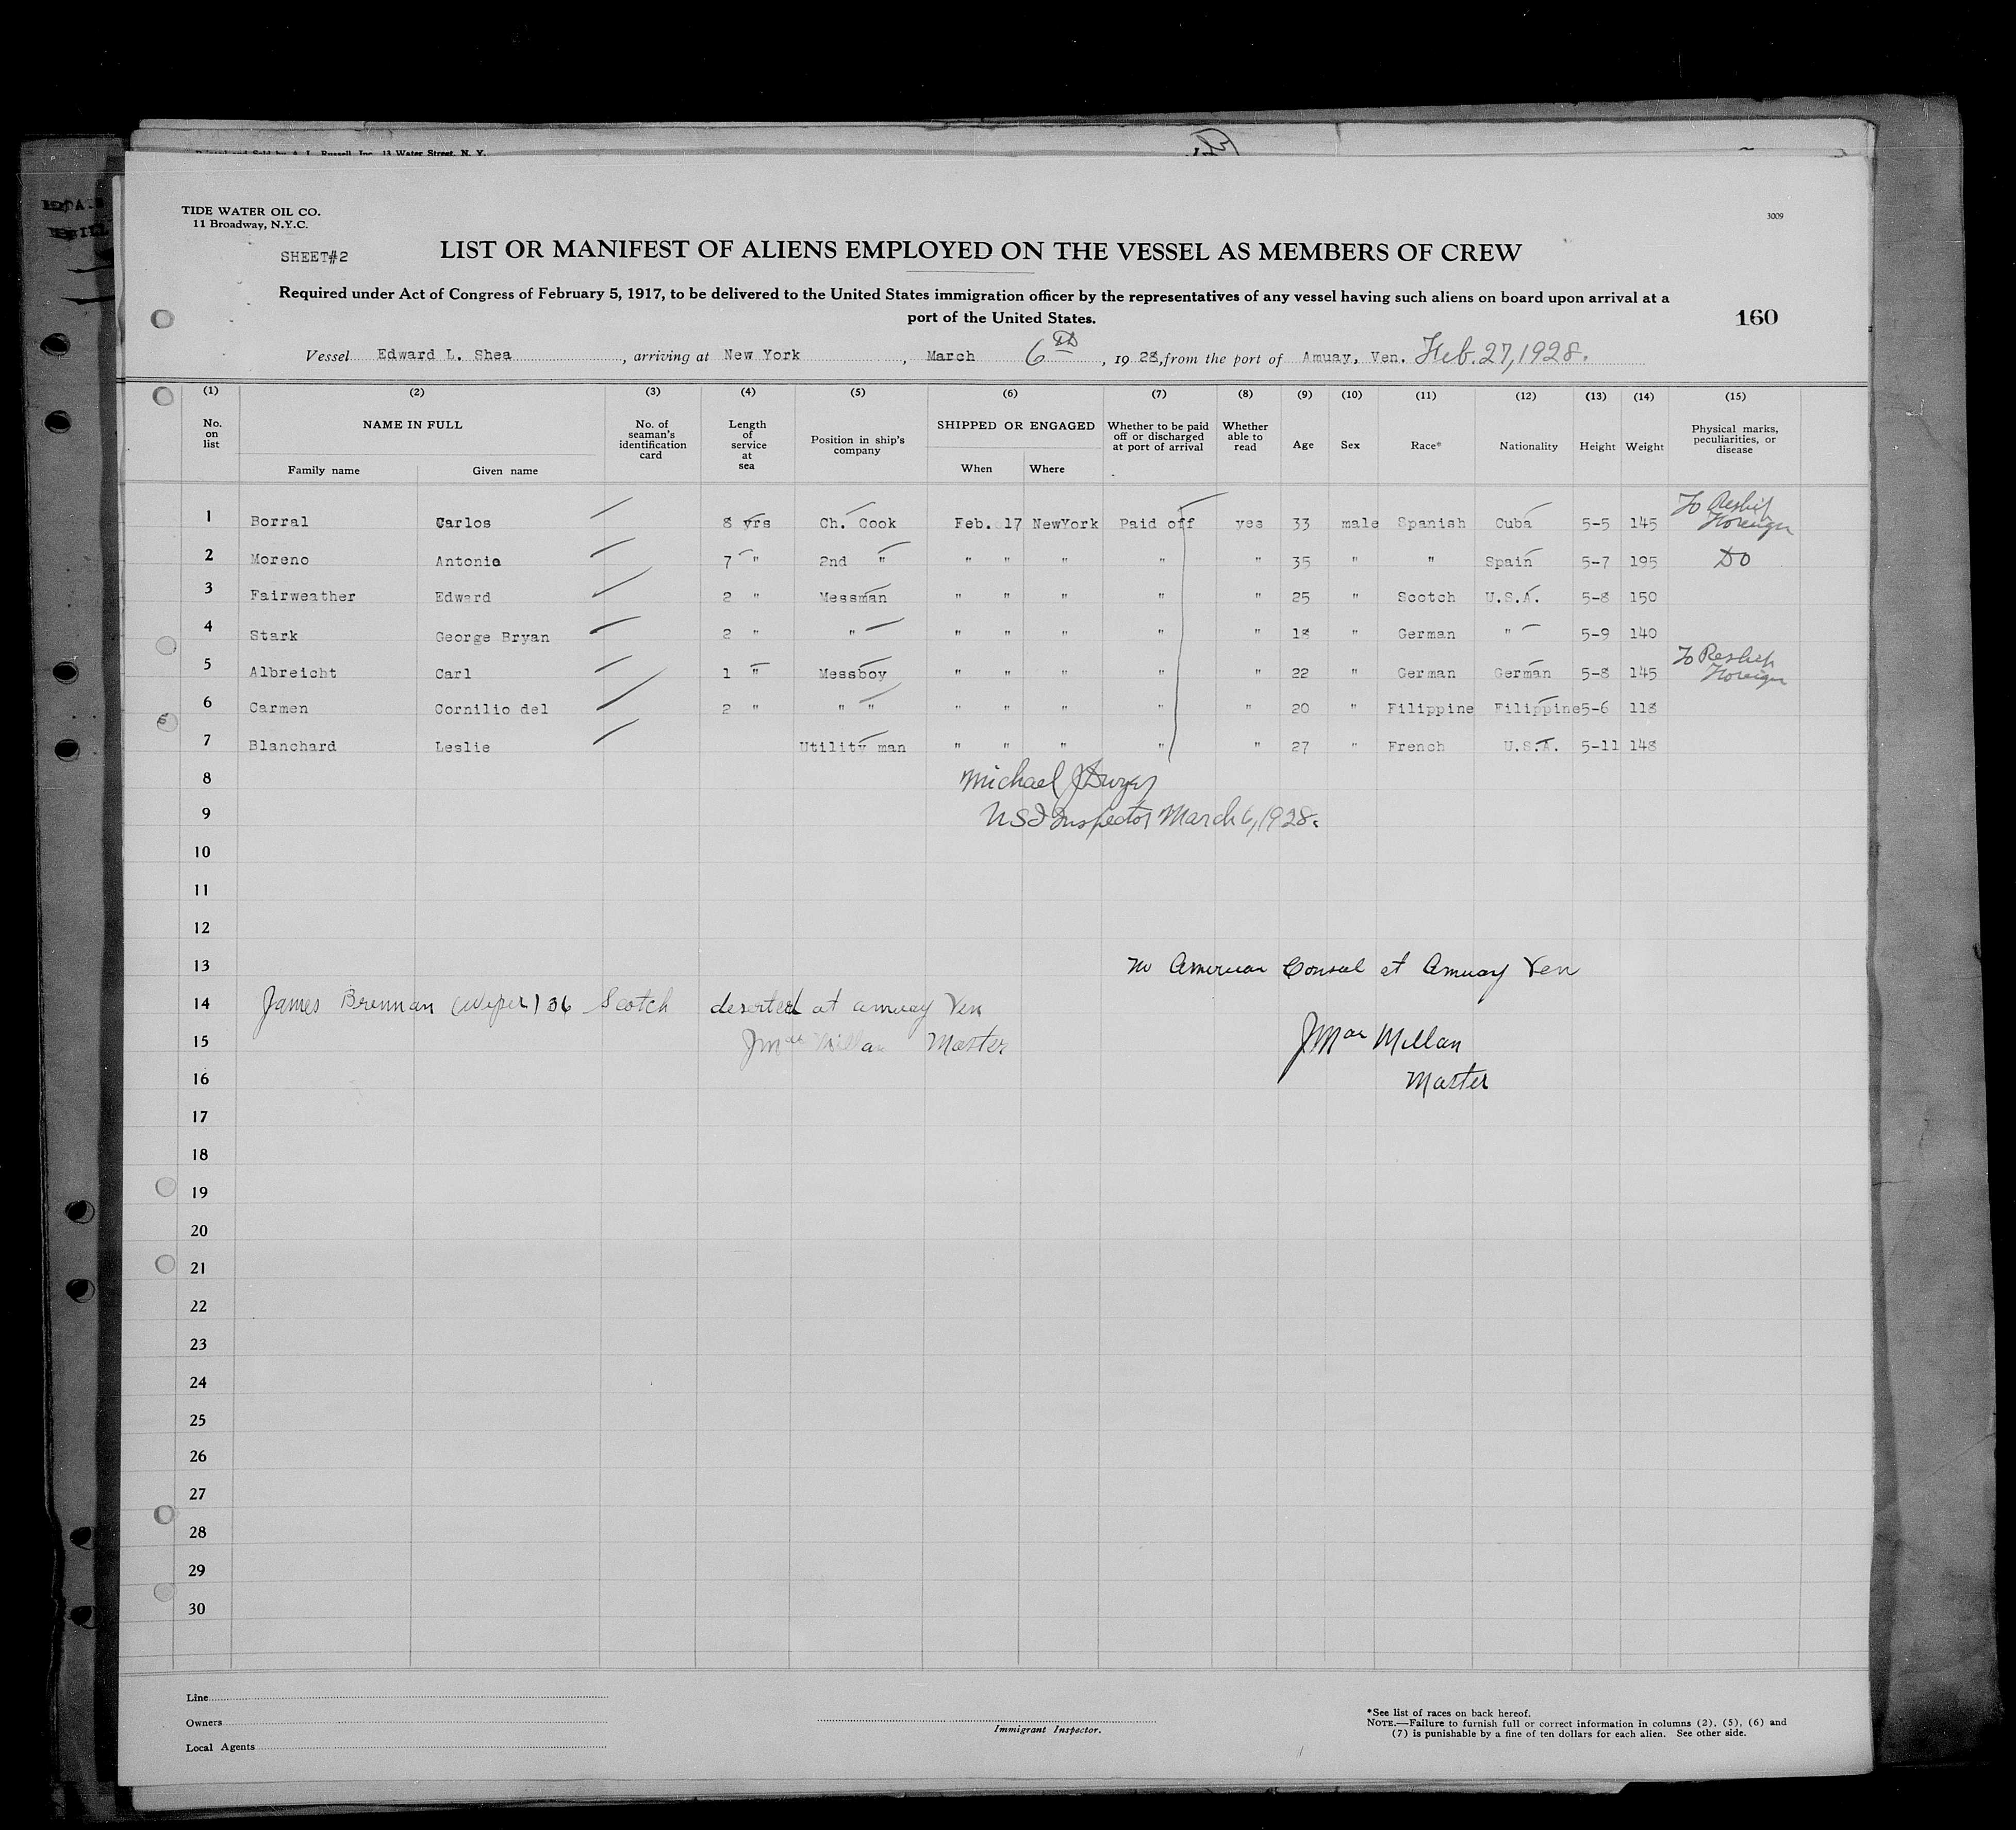 Printed and Sold by A. L. Russell, Inc. 13 Water Street, N. Y.
TIDE WATER OIL CO.
11 Broadway, N.Y.C.
3009
SHEET#2
LIST OR MANIFEST OF ALIENS EMPLOYED ON THE VESSEL AS MEMBERS OF CREW
Required under Act of Congress of February 5, 1917, to be delivered to the United States immigration officer by the representatives of any vessel having such aliens on board upon arrival at a
port of the United States.
160
Vessel Edward L. Shea, arriving at New York, March 6th, 1928, from the port of Amuay, Ven. Feb. 27, 1928.
(1) (2) (3) (4) (5) (6) (7) (8) (9) (10) (11) (12) (13) (14) (15)
No. on list NAME IN FULL Family name Given name No. of seaman's identification card Length of service at sea Position in ship's company SHIPPED OR ENGAGED When Where Whether to be paid off or discharged at port of arrival Whether able to read Age Sex Race* Nationality Height Weight Physical marks, peculiarities, or disease
1 Borral Carlos 8 yrs Ch. Cook Feb. 17 NewYork Paid off yes 33 male Spanish Cuba 5-5 145 To Reship Foreign
2 Moreno Antonio 7 " 2nd " " " " " " 35 " " Spain 5-7 195 Do
3 Fairweather Edward 2 " Messman " " " " " 25 " Scotch U.S.A. 5-8 150
4 Stark George Bryan 2 " " " " " " " 18 " German " 5-9 140
5 Albreicht Carl 1 " Messboy " " " " " 22 " German German 5-8 145 To Reship Foreign
6 Carmen Cornilio del 2 " " " " " " " " 20 " Filippine Filippine 5-6 118
7 Blanchard Leslie Utility man " " " " " 27 " French U.S.A. 5-11 148
8 Michael J Dwyer
9 US Inspector March 6, 1928.
10
11
12
13 No American Consul at Amuay Ven
14 James Brennan (Wiper) 36 Scotch deserted at amuay Ven
15 JMac Millan Master JMac Millan
16 Master
17
18
19
20
21
22
23
24
25
26
27
28
29
30
Line
Owners
Local Agents
Immigrant Inspector.
*See list of races on back hereof.
NOTE.—Failure to furnish full or correct information in columns (2), (5), (6) and
(7) is punishable by a fine of ten dollars for each alien. See other side.